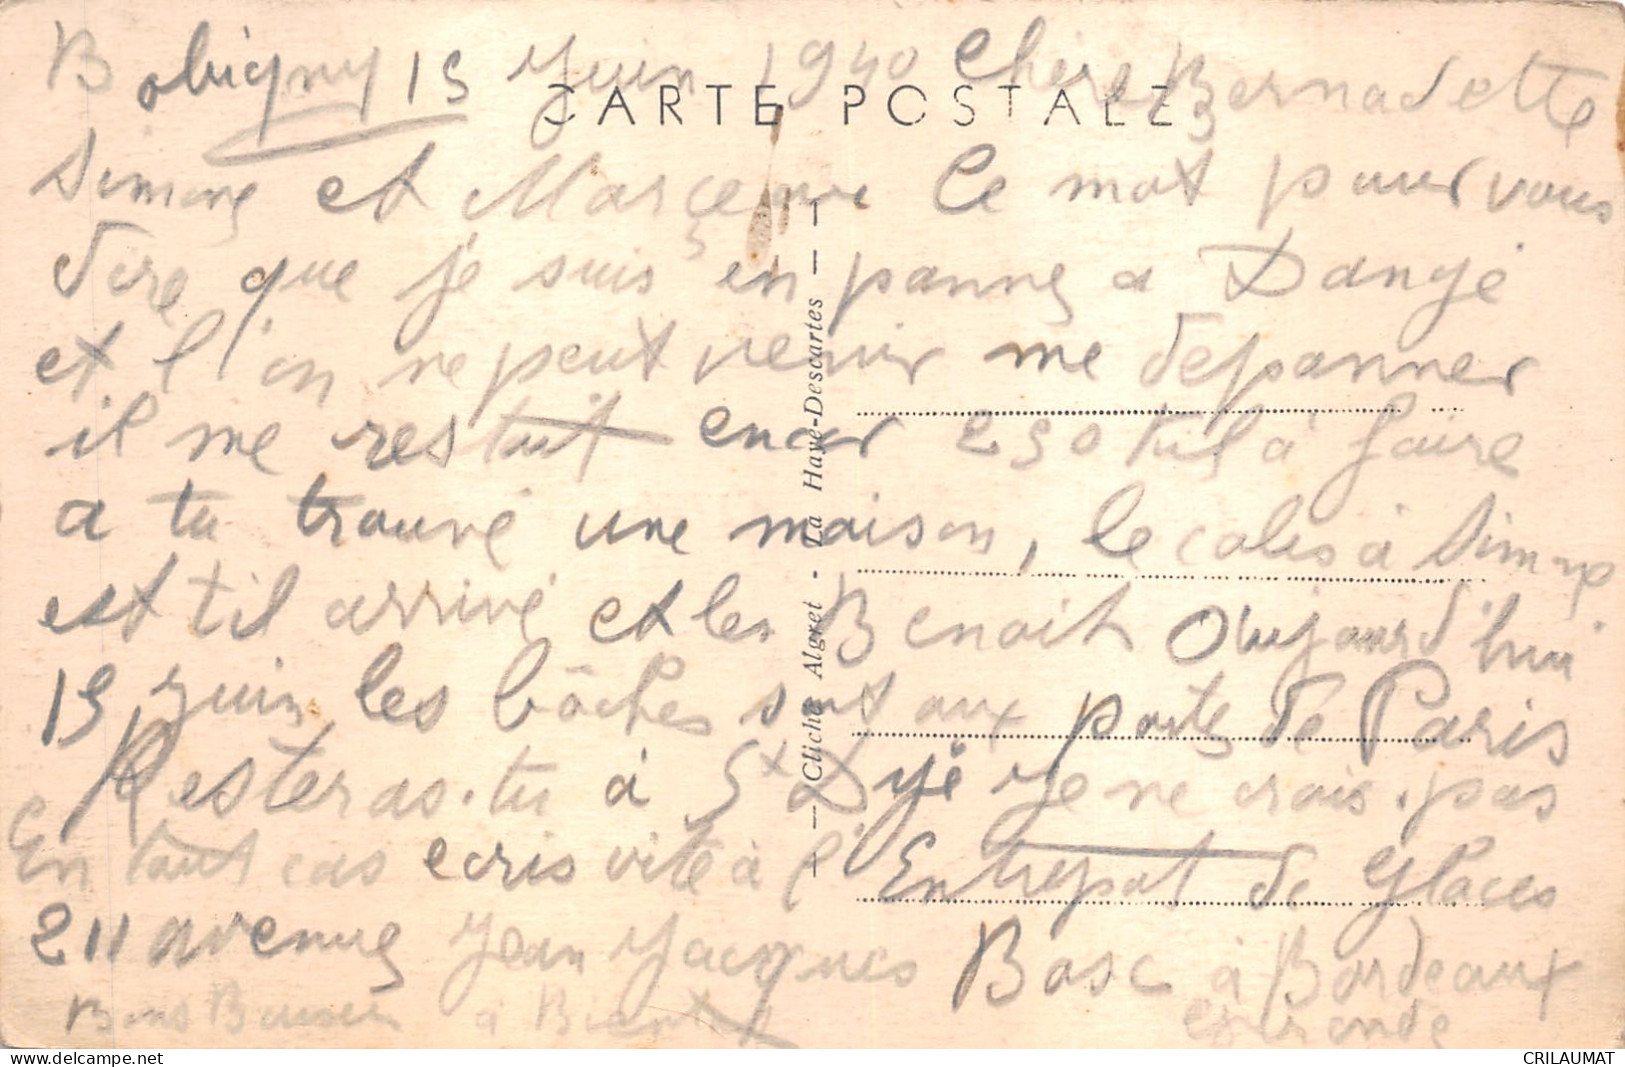 Bobigny 15 Juin 1940 Chère Bernadette
CARTE POSTALE
Simone et Ce mot pour vous
dire que je suis en panne a Dangé
et l'on ne peut venir me depanner
il me restait encor 250 à faire
a tu trouvé une maison, le colis à Simone
est til arrivé et les Benoit Oujourd'hui
15 juin les bôches sont aux porte de Paris
Resteras-tu à St Dyé je ne crois pas
En tout cas ecris vite à l'Entrepot de Glaces
211 avenue Jean Jacques Bosc à Bordeaux
Bons Baisers à Bientot Gironde
Cliché Algret - La Haye-Descartes
CRILAUMAT